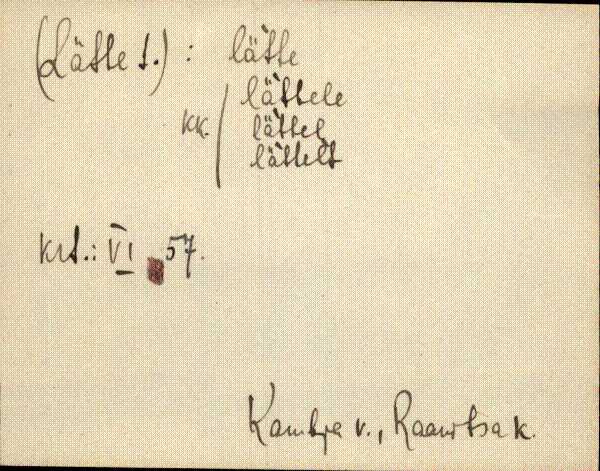 (Lätte t.) : lät̀te
lät̀tele
kk. lät̀tel
lät̀telt
krt.: VI 57.
Kambja v., Raanitsa k.